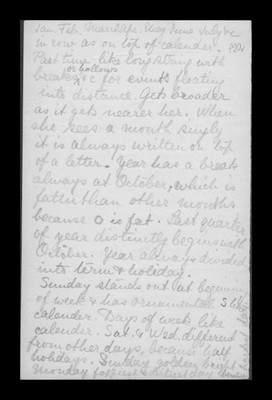 Jan. Feb. March Apr. May June July &c
in row as on top of calender.
Past time like long string with
breaks or hollows &c for events floating
into distance. Gets broader
as it gets nearer her. When
she sees a month singly
it is always written on top
of a letter. Year has a break
always at October, which is
fatter than other months
because O is fat. Last quarter
of year distinctly begins with
October. Year always divided
into term & holiday.
Sunday stands out (at beginning
of week & has ornamental S like
calender. Days of week like
calender. Sat. & Wed. different
from other days, because half
holidays. Sunday golden bright
Monday Saturday